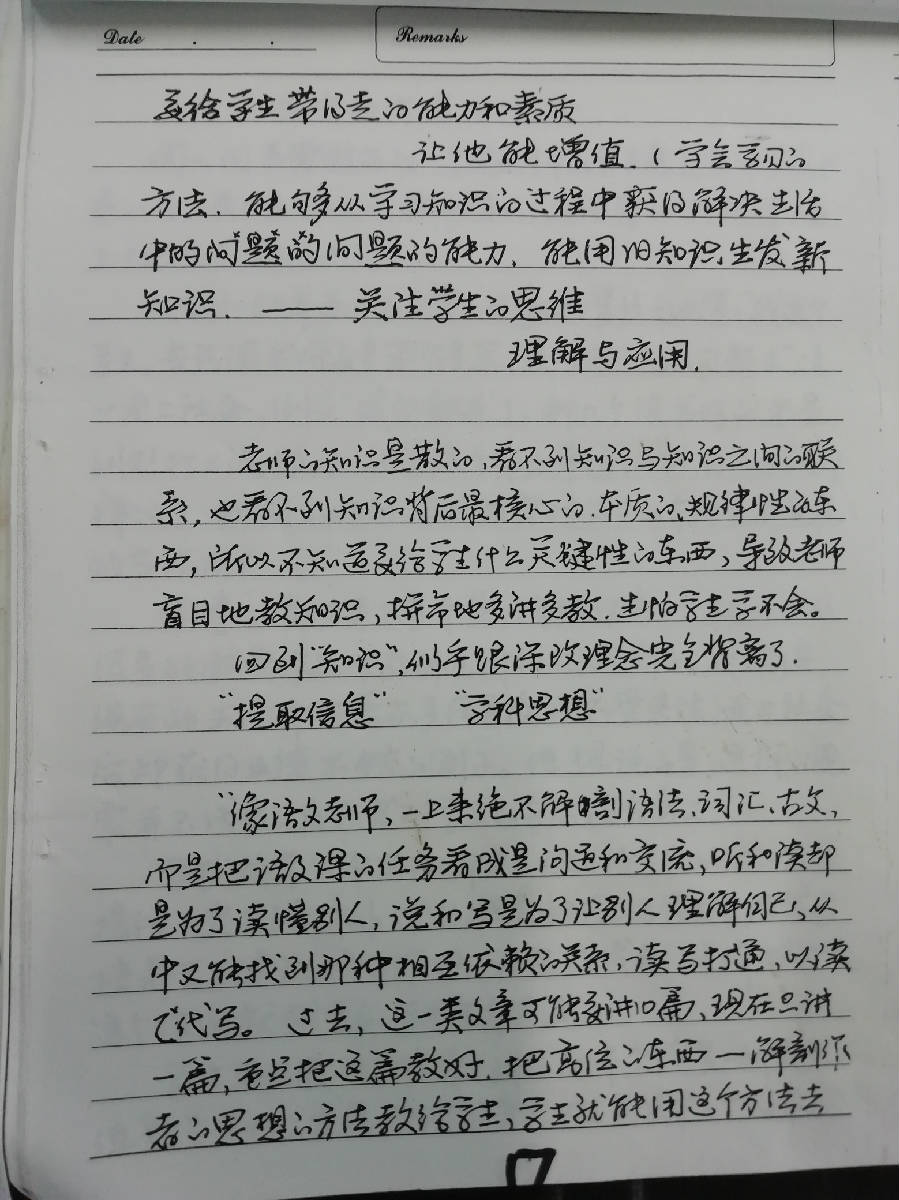 Date . .
Remarks
教给学生带得走的能力和素质
让他能增值.(学会学习的
方法.能够从学习知识的过程中获得解决生活
中的问题的问题的能力.能用旧知识生发新
知识.——关注学生的思维
理解与应用.
老师的知识是散的,看不到知识与知识之间的联
系,也看不到知识背后最核心的.本质的、规律性的东
西,所以不知道教给学生什么关键性的东西,导致老师
盲目地教知识,拼命地多讲多教.生怕学生学不会。
回到"知识",似乎跟课改理念完全背离了.
"提取信息" "学科思想"
"像语文老师,一上来绝不解剖语法、词汇、古文,
而是把语文课的任务看成是沟通和交流,听和读都
是为了读懂别人,说和写是为了让别人理解自己、从
中又能找到那种相互依赖的关系,读写打通,以读
代写。过去,这一类文章可能要讲10篇,现在只讲
一篇,重点把这篇教好.把高位的东西—解剖作
者的思想的方法教给学生,学生就能用这个方法去